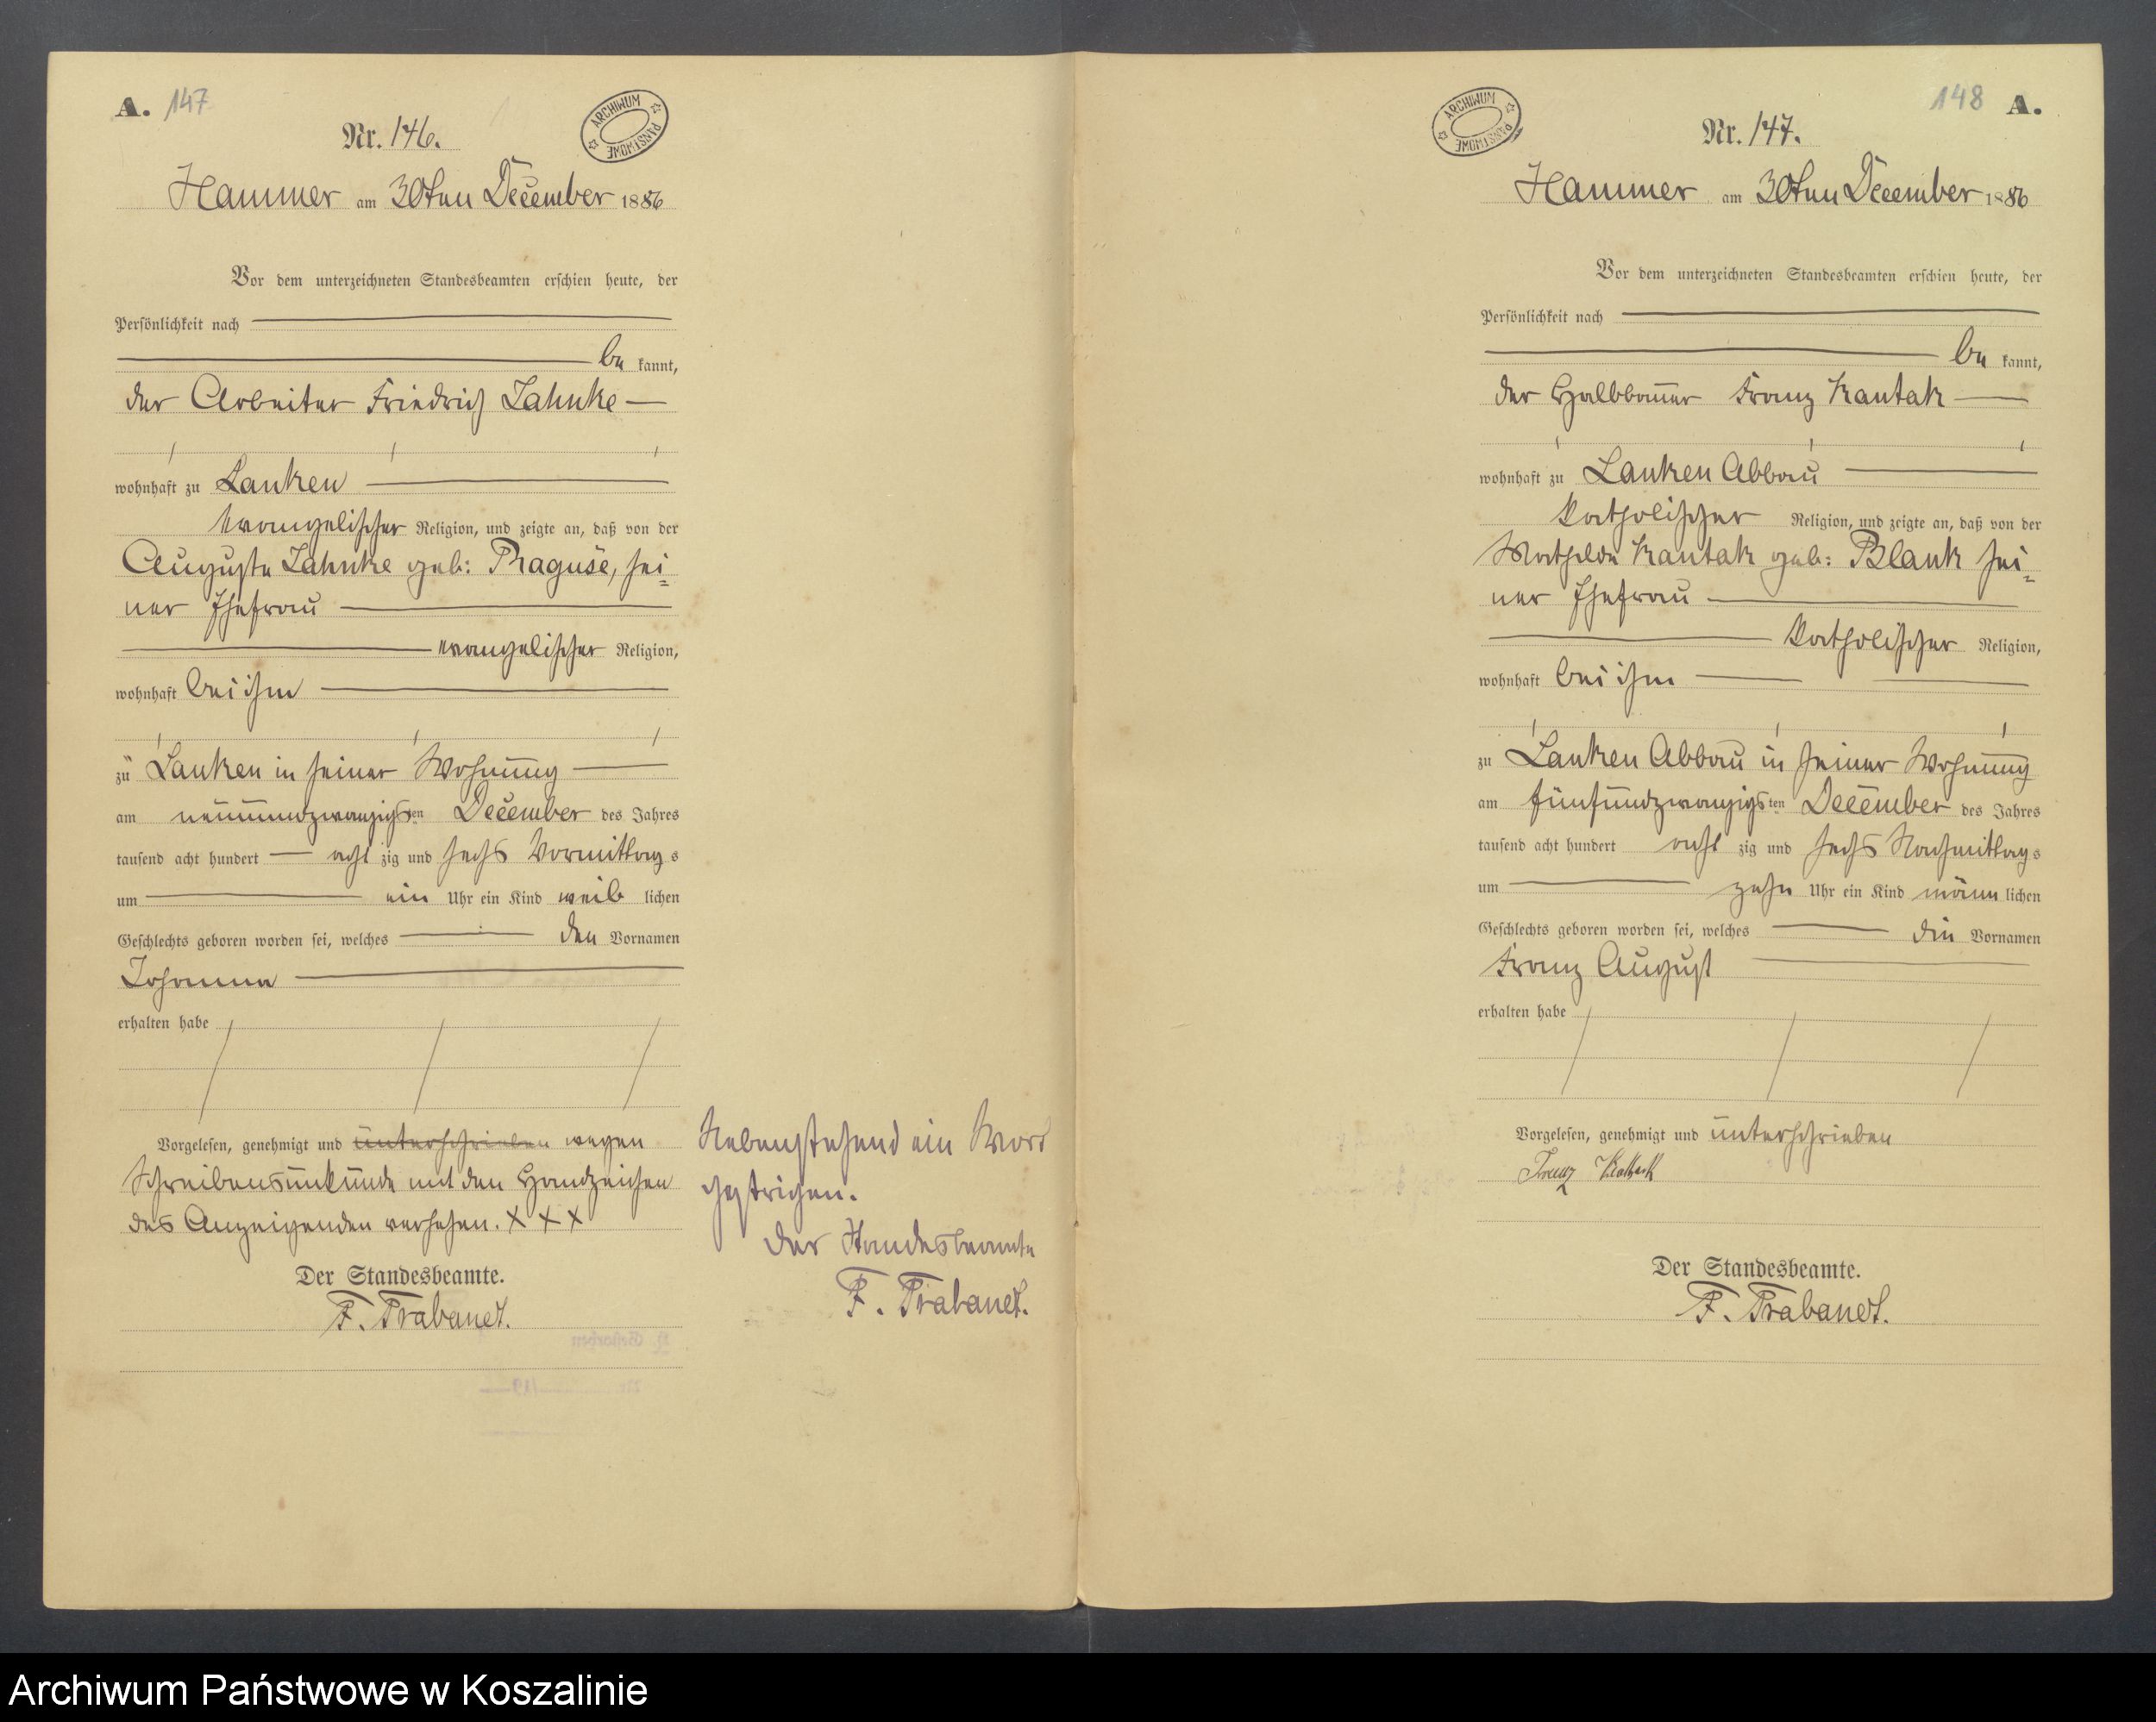 A. 147
Nr. 146.
ARCHIWUM PAŃSTWOWE
Hammer am 30ten December 1886
Vor dem unterzeichneten Standesbeamten erschien heute, der
Persönlichkeit nach
be kannt,
der Arbeiter Friedrich Jahnke
wohnhaft zu Lanken
evangelischer Religion, und zeigte an, daß von der
Auguste Jahnke geb: Raguse, sei=
ner Ehefrau
evangelischer Religion,
wohnhaft bei ihm
zu Lanken in seiner Wohnung
am neunundzwanzigsten December des Jahres
tausend acht hundert acht zig und sechs Vormittags
um ein Uhr ein Kind weib lichen
Geschlechts geboren worden sei, welches den Vornamen
Johanna
erhalten habe
Vorgelesen, genehmigt und unterschrieben wegen
Schreibensunkunde mit den Handzeichen
des Anzeigenden versehen. X X X
Der Standesbeamte.
F. Trabandt.
Nebenstehend ein Wort
gestrichen.
Der Standesbeamte
F. Trabandt.
148 A.
Nr. 147.
ARCHIWUM PAŃSTWOWE
Hammer am 30ten December 1886
Vor dem unterzeichneten Standesbeamten erschien heute, der
Persönlichkeit nach
be kannt,
der Halbbauer Franz Kantak
wohnhaft zu Lanken Abbau
katholischer Religion, und zeigte an, daß von der
Mathilde Kantak geb: Blank sei=
ner Ehefrau
katholischer Religion,
wohnhaft bei ihm
zu Lanken Abbau in seiner Wohnung
am fünfundzwanzigsten December des Jahres
tausend acht hundert acht zig und sechs Nachmittags
um zehn Uhr ein Kind männ lichen
Geschlechts geboren worden sei, welches die Vornamen
Franz August
erhalten habe
Vorgelesen, genehmigt und unterschrieben
Franz Kantack
Der Standesbeamte.
F. Trabandt.
Archiwum Państwowe w Koszalinie